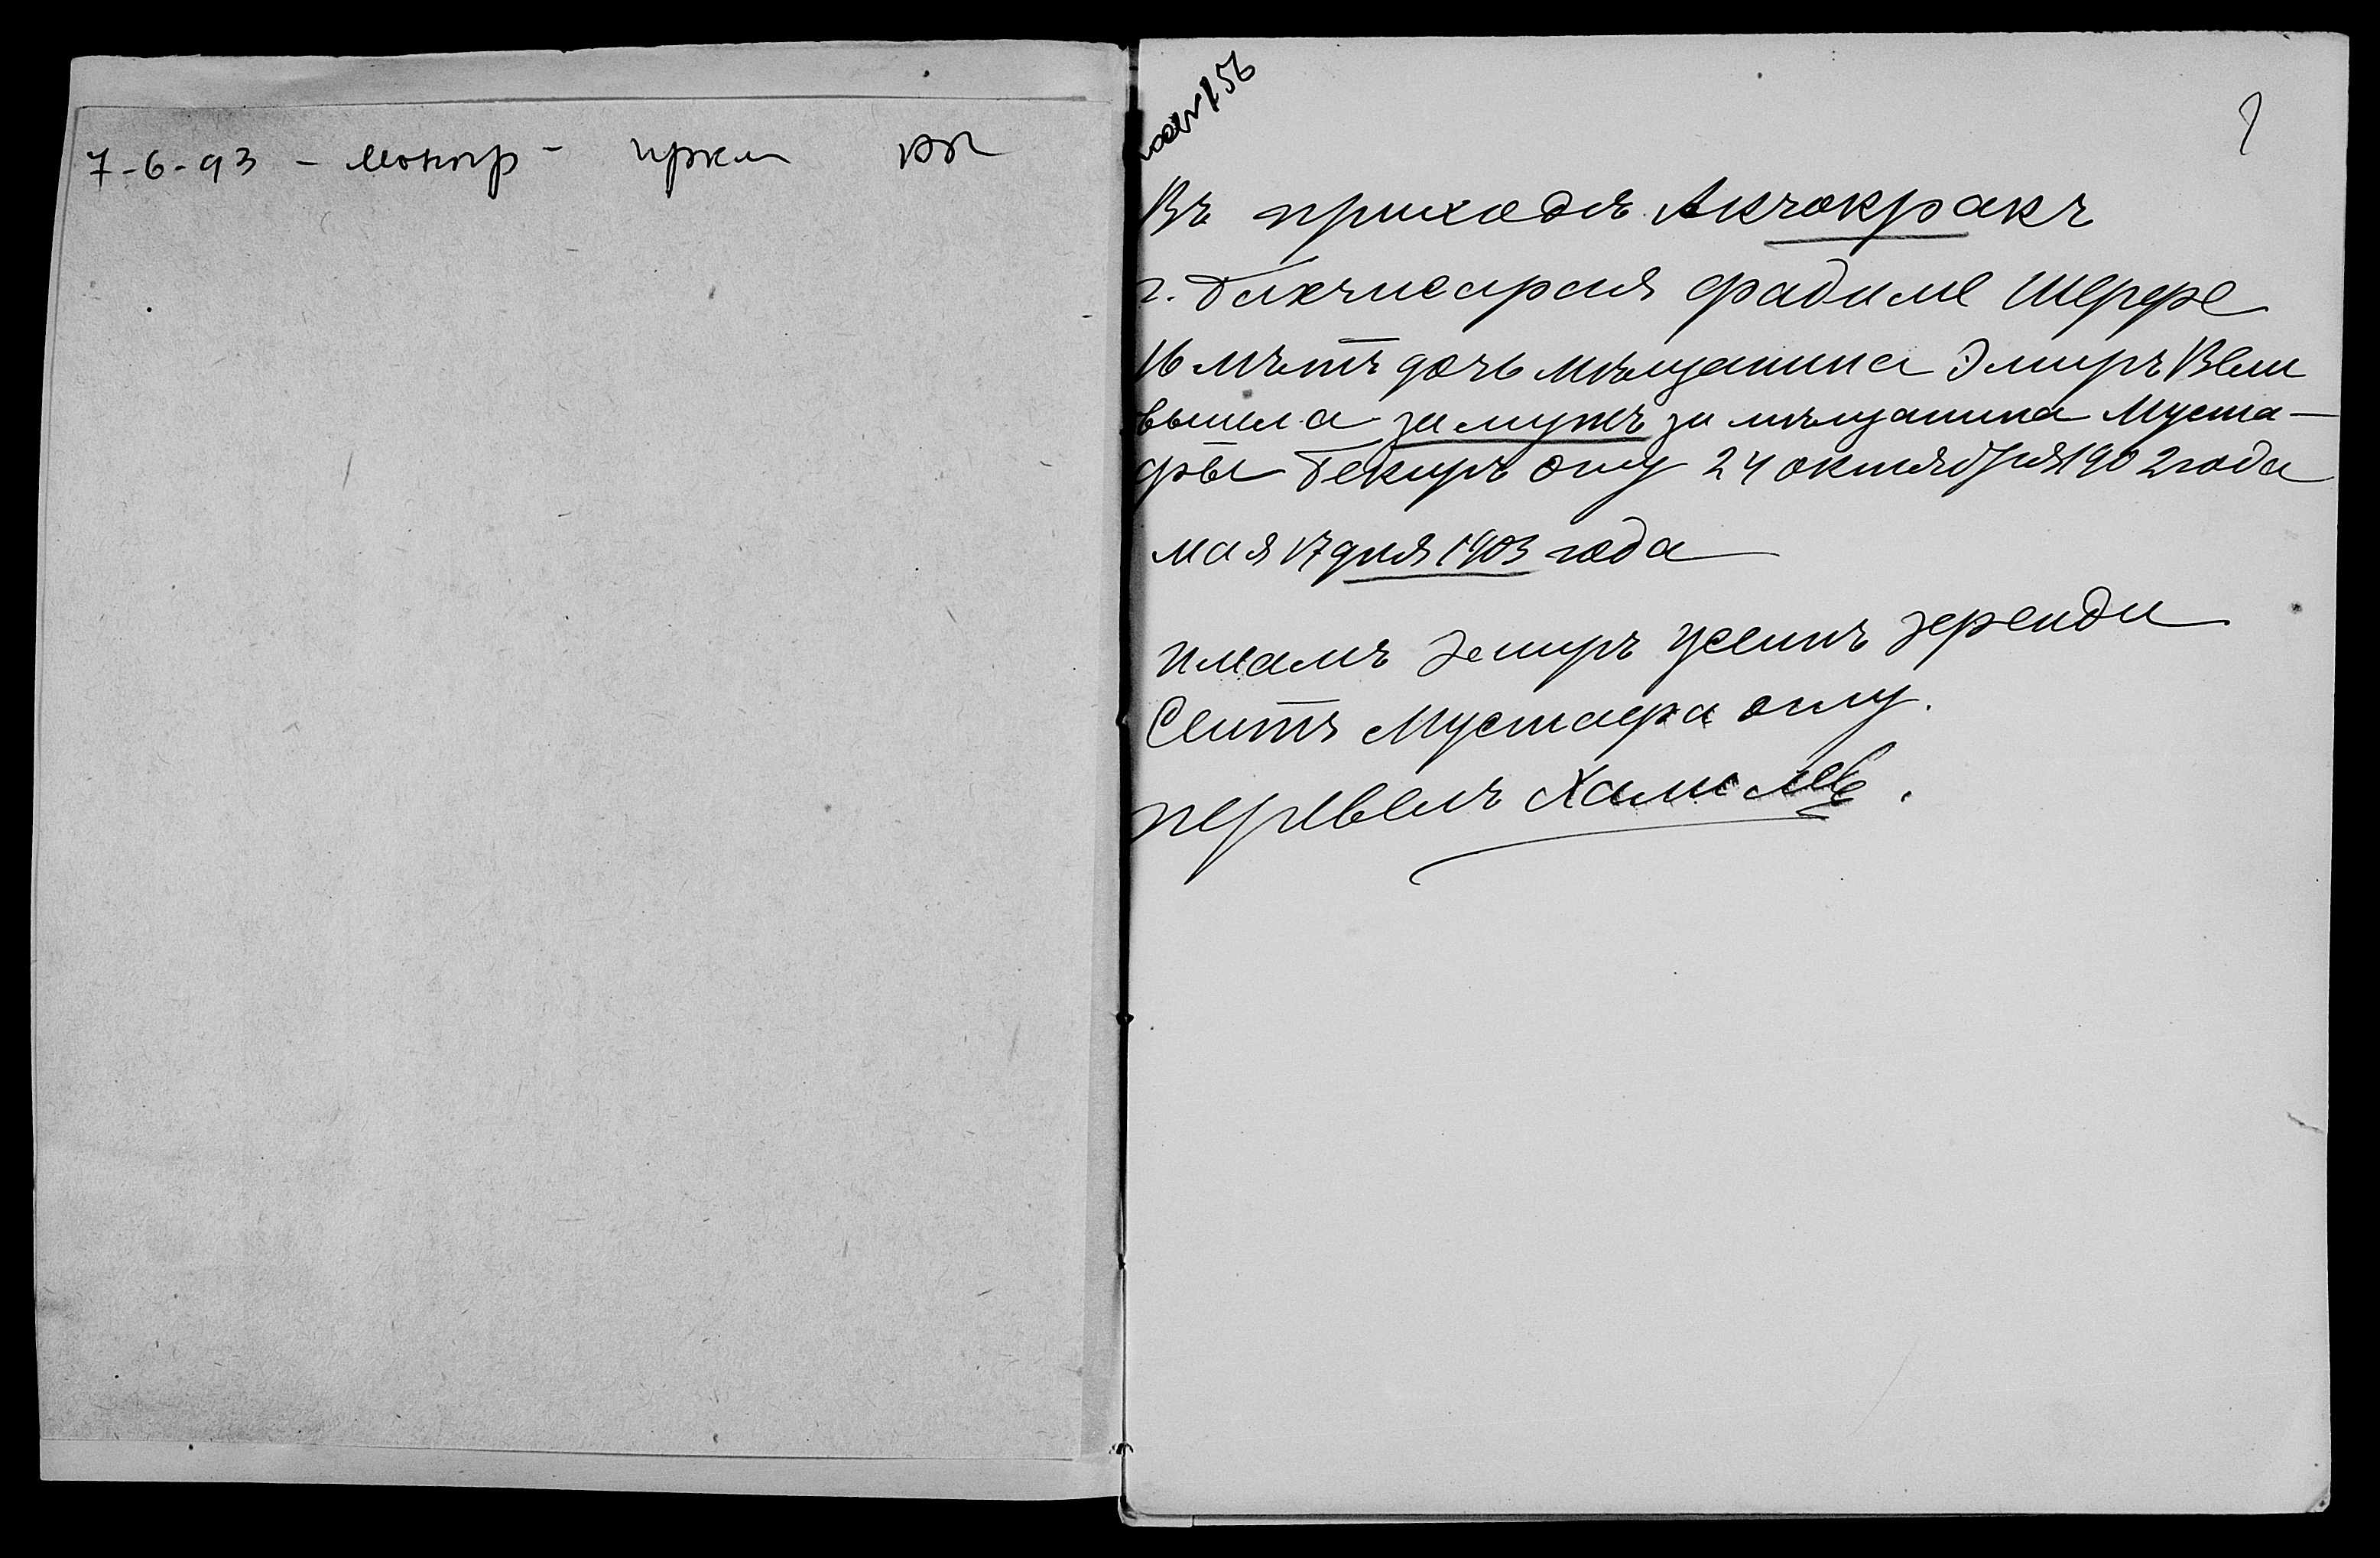 7-6-93 -
156
Въ приходѣ Акчокракъ
г. Бахчисарая Фадиме Шерфе
16 лѣтъ дочь мѣщанина Эмиръ Вели
вышла замужъ за мѣщанина Муста-
фы Бекиръ оглу 24 октября 1902 года
мая 17 дня 1903 года
имамъ Эмиръ Усеинъ эфенди
Сеитъ Мустафа оглу.
перевелъ Халилевъ.